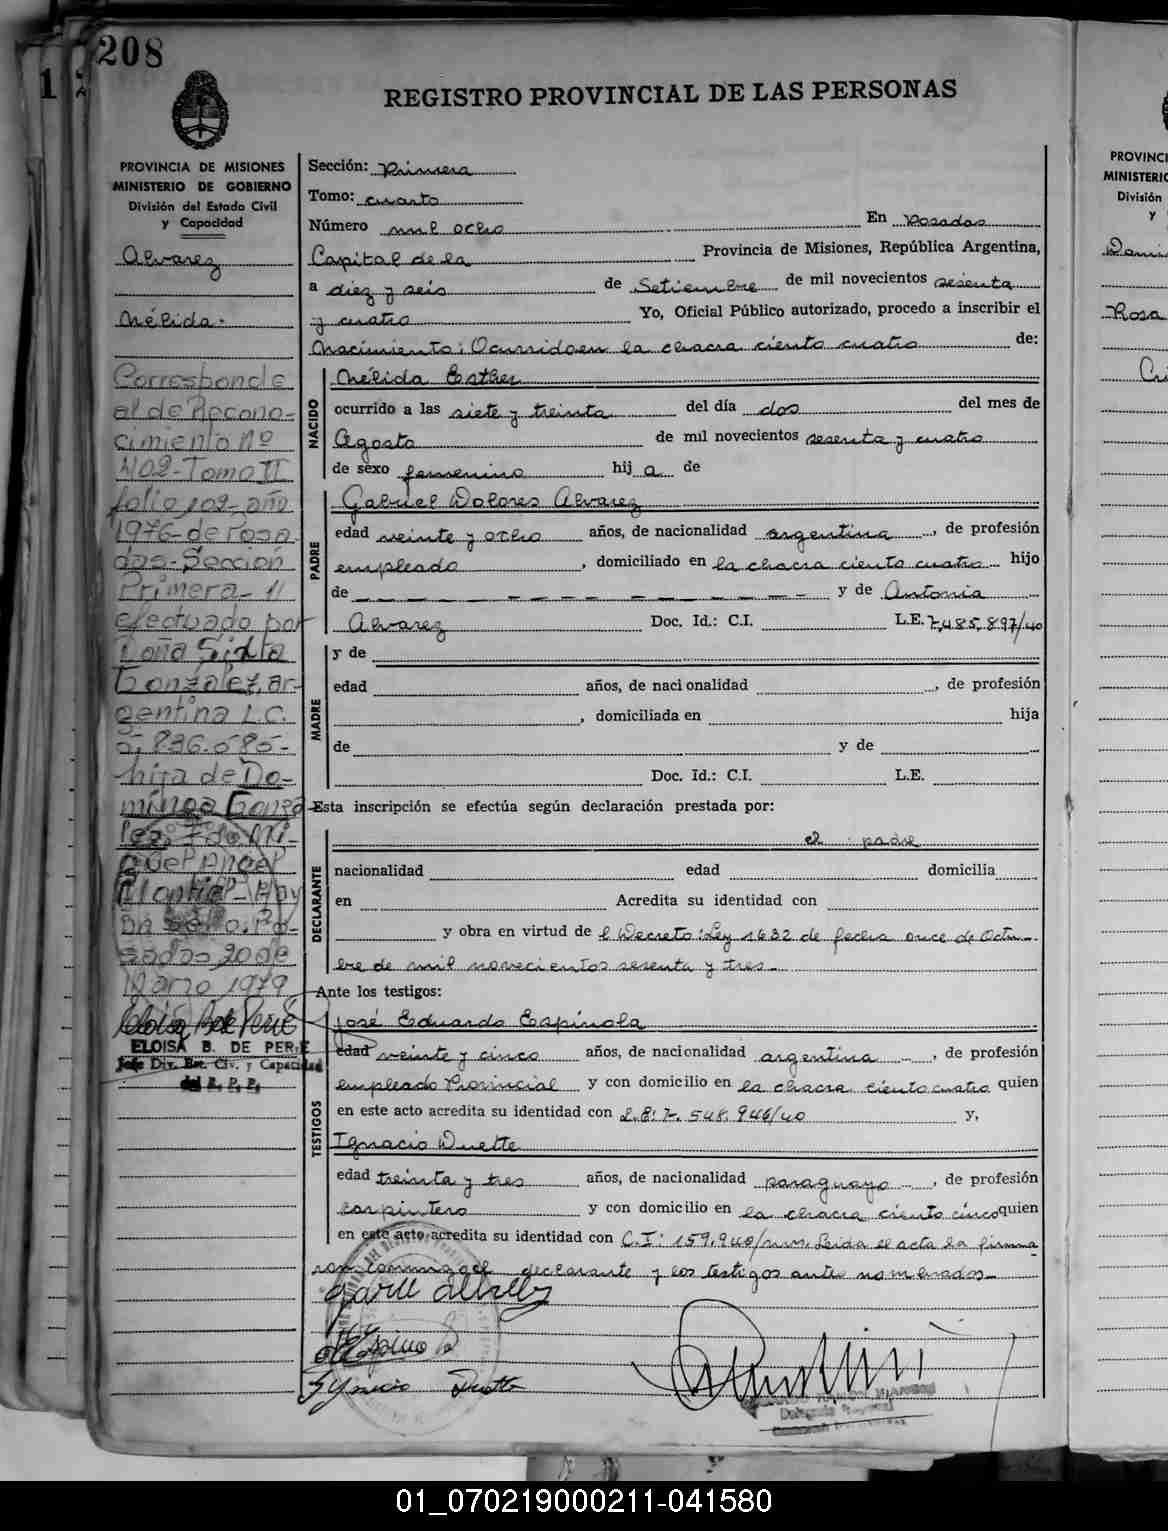 208
REGISTRO PROVINCIAL DE LAS PERSONAS
PROVINCIA DE MISIONES
MINISTERIO DE GOBIERNO
División del Estado Civil
y Capacidad
Alvarez
Nélida.
Corresponde
al de Recono-
cimiento Nº
402-Tomo II
folio 102-año
1976-de Posa
das-Sección
Primera-
efectuado por
Doña Sixta
González, ar-
gentina L.C.
hija de Do-
minga Gonza
lez. Fdo. Mi-
guel Angel
Montiel-Hay
un sello. Po-
sadas 20 de
Marzo 1979
ELOISA B. DE PER E
Jefe Div. Est. Civ. y Capacidad
del R. P. P.
Sección: Primera
Tomo: cuarto
Número mil ocho En Posadas
Capital de la Provincia de Misiones, República Argentina,
a diez y seis de Setiembre de mil novecientos sesenta
y cuatro Yo, Oficial Público autorizado, procedo a inscribir el
Nacimiento: Ocurrido en la chacra ciento cuatro de:
NACIDO
Nélida Esther
ocurrido a las siete y treinta del día dos del mes de
Agosto de mil novecientos sesenta y cuatro
de sexo femenino hij a de
PADRE
Gabriel Dolores Alvarez
edad veinte y ocho años, de nacionalidad argentina, de profesión
empleado, domiciliado en la chacra ciento cuatro hijo
de _ _ _ _ _ _ _ _ _ _ y de Antonia
Alvarez Doc. Id.: C.I. L.E. 7.485.897/40
MADRE
y de
edad años, de nacionalidad , de profesión
, domiciliada en hija
de y de
Doc. Id.: C.I. L.E.
Esta inscripción se efectúa según declaración prestada por:
DECLARANTE
el padre
nacionalidad edad domicilia
en Acredita su identidad con
y obra en virtud de el Decreto: Ley 1632 de fecha once de Octu-
bre de mil novecientos sesenta y tres-
Ante los testigos:
TESTIGOS
José Eduardo Espínola
edad veinte y cinco años, de nacionalidad argentina, de profesión
empleado Provincial y con domicilio en la chacra ciento cuatro quien
en este acto acredita su identidad con L.E: 7.548.946/40 y,
Ignacio Duette
edad treinta y tres años, de nacionalidad paraguayo, de profesión
carpintero y con domicilio en la chacra ciento cinco quien
en este acto acredita su identidad con C.I: 159.940/mns. Leida el acta la firman
conmigo el declarante y los testigos antes nombrados-
Ignacio Duette
PROVINCI
MINISTERIO
División
y
Rosa
01_070219000211-041580